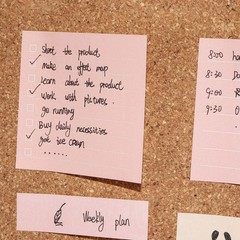 Short the product
make an effort map
Learn about the product
work with pictures.
go running
Buy daily necessities
give ice cream
......
Weekly plan
8:00
8:30
9:00
9:30